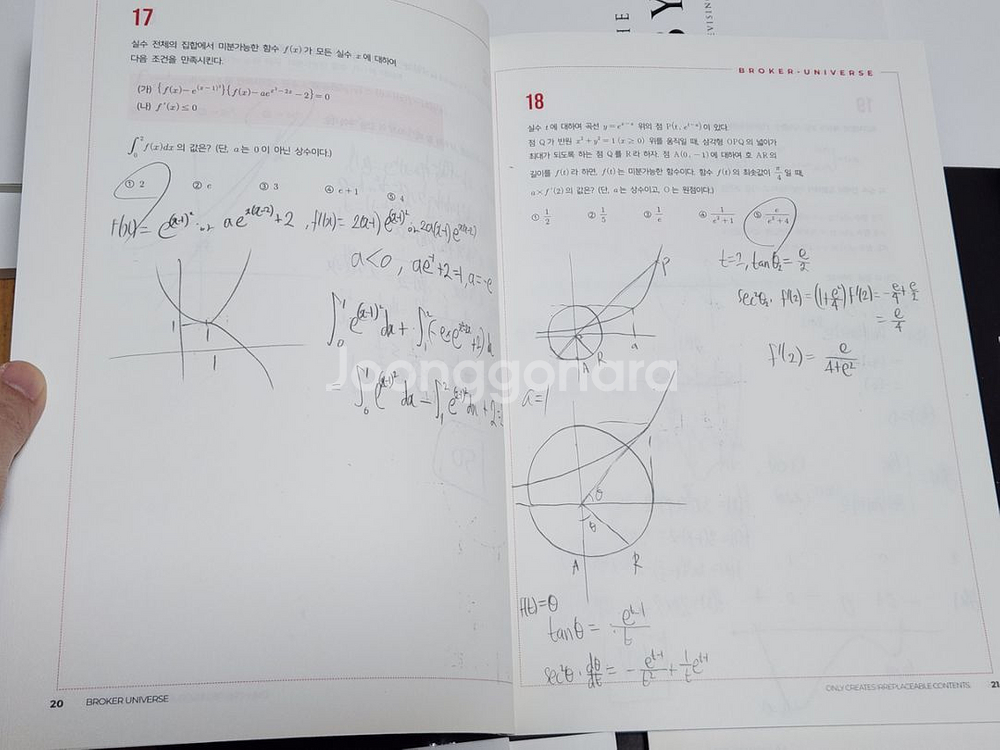 17
실수 전체의 집합에서 미분가능한 함수 f(x)가 모든 실수 x에 대하여
다음 조건을 만족시킨다.
(가) {f(x)-e^{(x-1)^2}}{f(x)-ae^{x^2-2x}-2}=0
(나) f'(x)≤0
∫_0^2 f(x)dx의 값은? (단, a는 0이 아닌 상수이다.)
① 2 ② e ③ 3 ④ e+1 ⑤ 4
f(x)= e^{(x-1)^2} or ae^{x(x-2)}+2, f'(x)= 2(x-1)e^{(x-1)^2} or 2a(x-1)e^{x(x-2)}
a<0, ae^{-1}+2=1, a=-e
1
1
∫_0^1 e^{(x-1)^2}dx + ∫_1^2
= ∫_0^1 e^{(x-1)^2}dx - ∫_1^2 e^{(x-1)^2}dx + 2=2
Joonggonara
20 BROKER UNIVERSE
BROKER-UNIVERSE
18
실수 t에 대하여 곡선 y=e^{x-a} 위의 점 P(t, e^{t-a})이 있다.
점 Q가 반원 x²+y²=1 (x≥0) 위를 움직일 때, 삼각형 OPQ의 넓이가
최대가 되도록 하는 점 Q를 R라 하자. 점 A(0, -1)에 대하여 호 AR의
길이를 f(t)라 하면, f(t)는 미분가능한 함수이다. 함수 f(t)의 최솟값이 π/4일 때,
a×f'(2)의 값은? (단, a는 상수이고, O는 원점이다.)
① 1/2 ② 1/5 ③ 1/e ④ 1/(e²+1) ⑤ e/(e²+4)
t=2, tanθ₂= e/2
sec²θ₂ f'(2) = (1+e²/4)f'(2) = -e/4+e/2
= e/4
f'(2) = e/(4+e²)
P
R
A
a
a=1
θ
θ
A
R
f(t)=θ
tanθ = e^{t-1}/t
sec²θ · dθ/dt = - e^{t-1}/t² + 1/t e^{t-1}
ONLY CREATES IRREPLACEABLE CONTENTS. 21